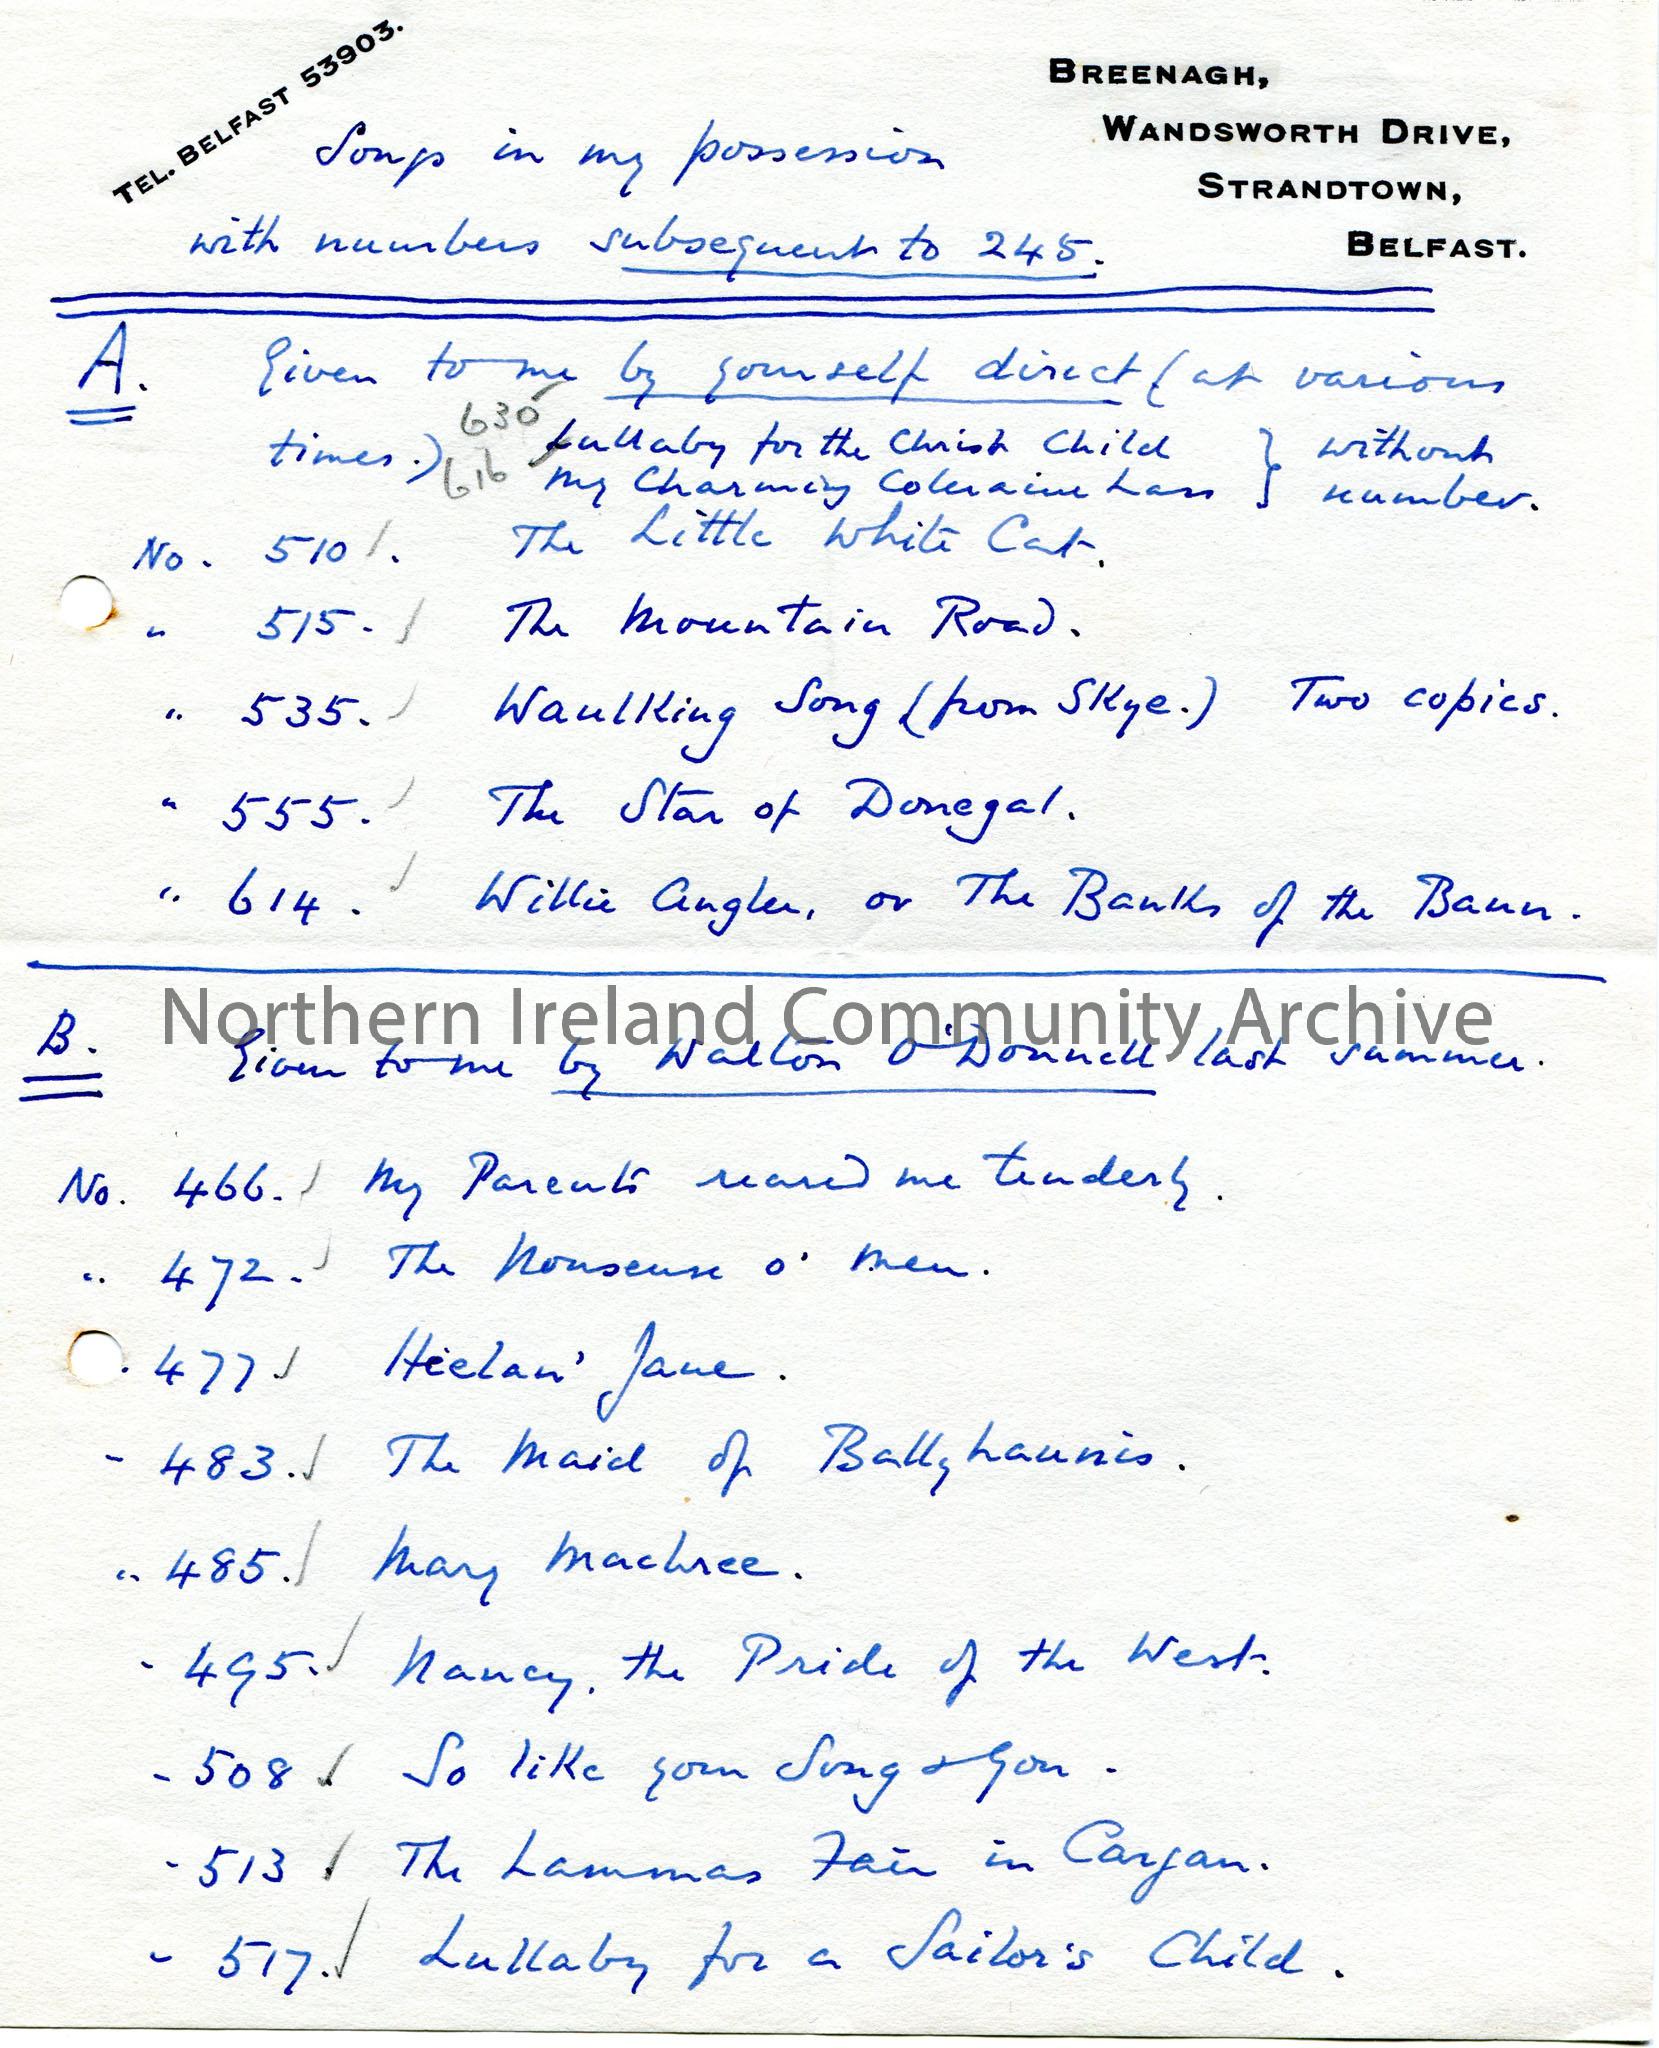 TEL. BELFAST 53903.
BREENAGH,
WANDSWORTH DRIVE,
STRANDTOWN,
BELFAST.
Songs in my possession
with numbers subsequent to 245.
A. Given to me by yourself direct (at various
times.) 630 Lullaby for the Christ Child } without
616 My Charming Coleraine Lass } number.
No. 510. The Little White Cat.
" 515. The Mountain Road.
" 535. Waulking Song (from Skye.) Two copies.
" 555. The Star of Donegal.
" 614. Willie Angler, or The Banks of the Bann.
Northern Ireland Community Archive
B. Given to me by Walton O'Donnell last summer.
No. 466. My Parents reared me tenderly.
" 472. The Nonsense o' Men.
" 477 Heelan' Jane.
" 483. The Maid of Ballyhaunis.
" 485. Mary Machree.
" 495. Nancy, the Pride of the West.
" 508 So like your Song & You.
" 513 The Lammas Fair in Cargan.
" 517. Lullaby for a Sailor's Child.